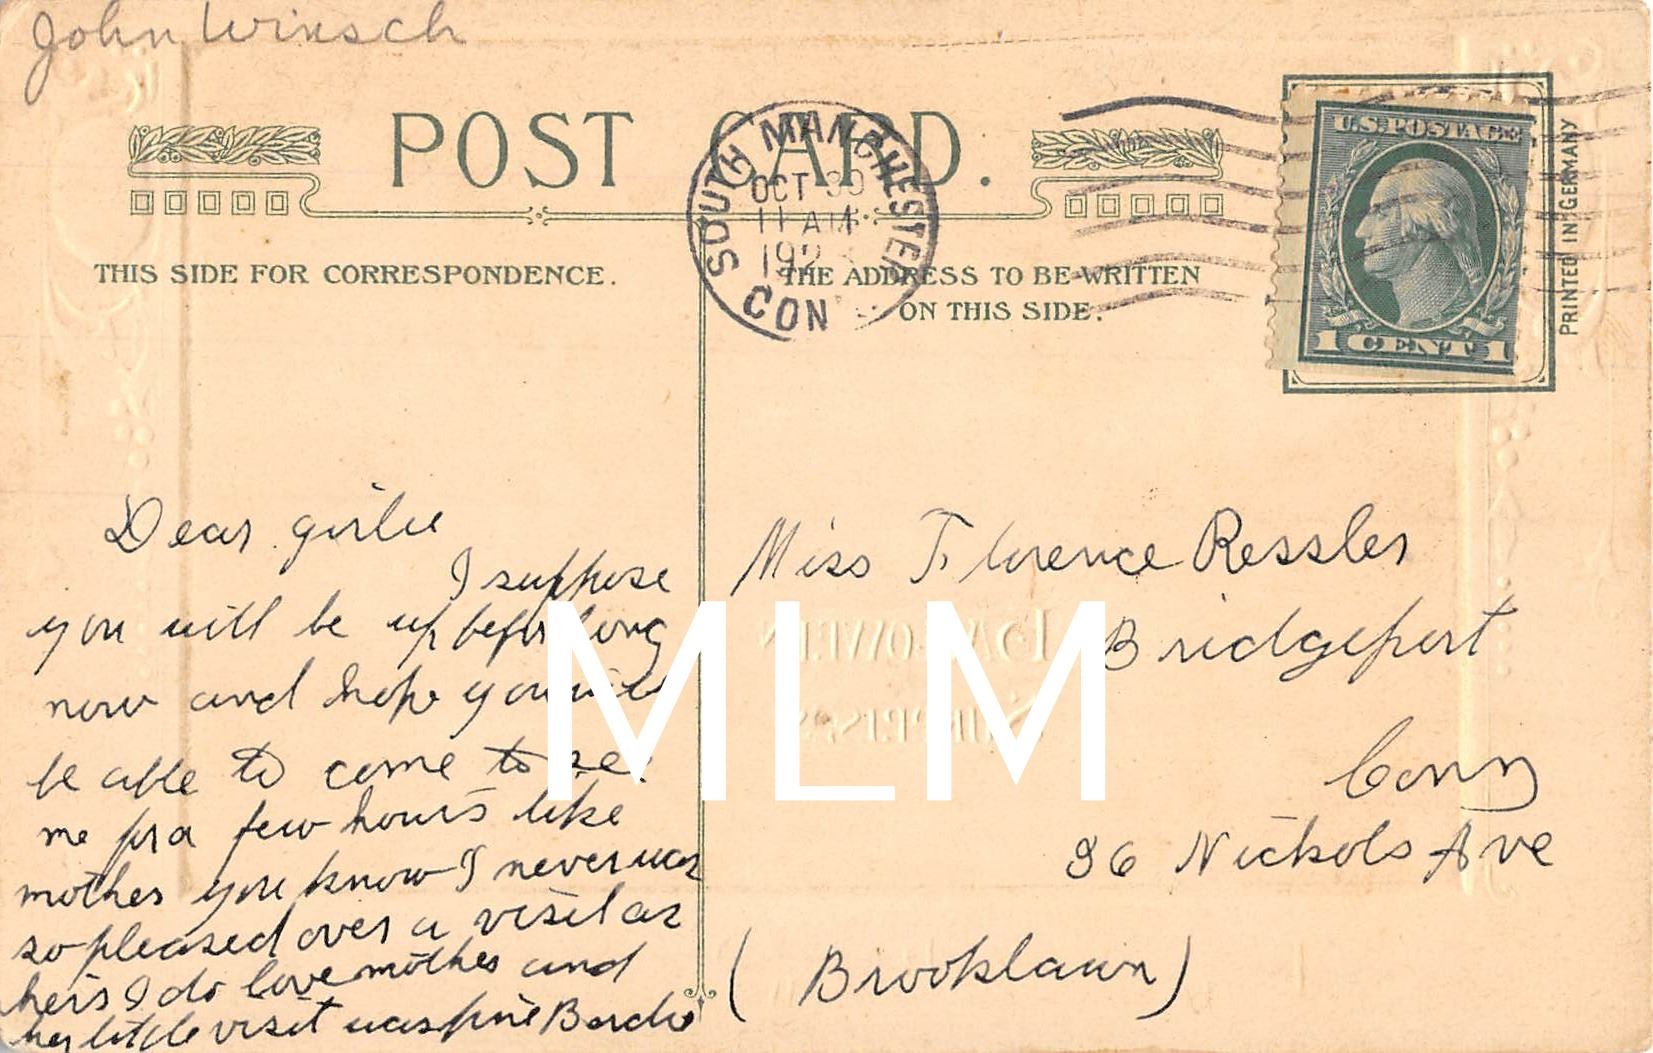 John Winsch
POST CARD.
SOUTH MANCHESTER
OCT 30
11 AM
192
CON
U.S. POSTAGE
1 CENT 1
PRINTED IN GERMANY
THIS SIDE FOR CORRESPONDENCE.
THE ADDRESS TO BE WRITTEN
ON THIS SIDE.
Dear girlie
I suppose
you will be up before long
now and hope you will
be able to come to see
me for a few hours like
mother you know I never was
so pleased over a visit as
hers I do love mother and
her little visit was fine Birdie
Miss Florence Ressler
Bridgeport
Conn
36 Nichols Ave
(Brooklawn)
HALLOWE'EN
SURPRISES
MLM